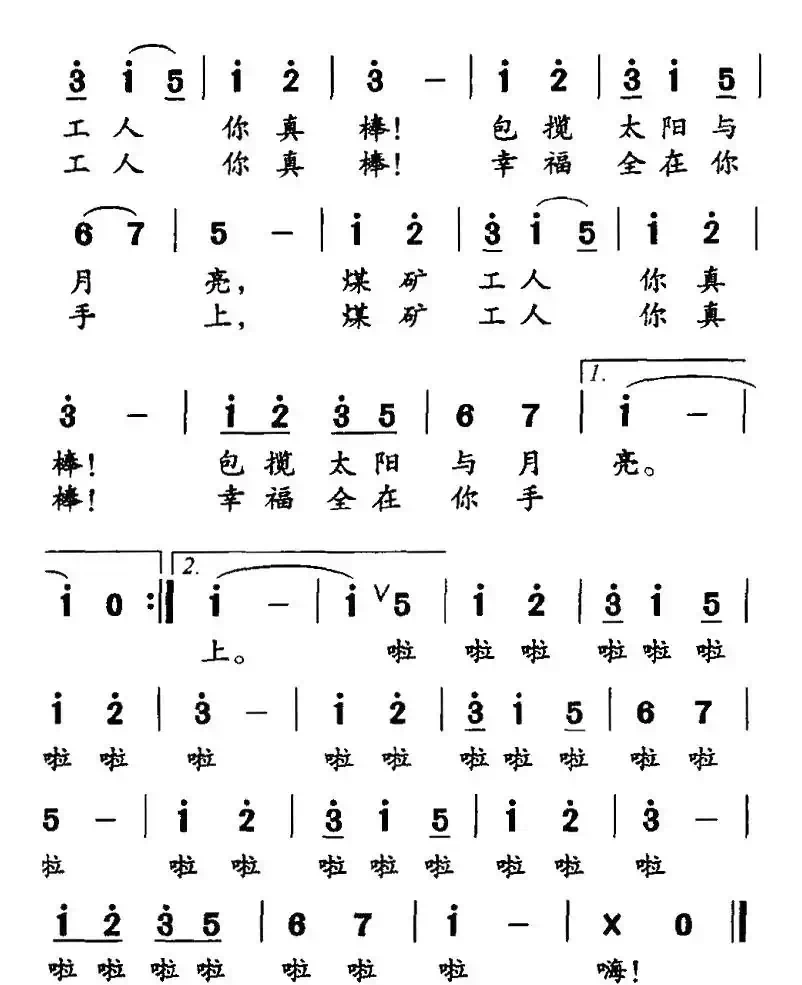 3̲̇ 1̇ 5̲ | 1̇ 2̇ | 3̇ － | 1̇ 2̇ | 3̲̇ 1̇ 5̲ |
工人 你真 棒！ 包揽 太阳与
工人 你真 棒！ 幸福 全在你
6 7 | 5 － | 1̇ 2̇ | 3̲̇ 1̇ 5̲ | 1̇ 2̇ |
月 亮， 煤矿 工人 你真
手 上， 煤矿 工人 你真
1.
3̇ － | 1̲̇ 2̲̇ 3̲̇ 5̲ | 6 7 | 1̇ － |
棒！ 包揽太阳 与月 亮。
棒！ 幸福全在 你手
2.
1̇ 0 :‖ 1̇ － | 1̇ ∨ 5 | 1̇ 2̇ | 3̲̇ 1̇ 5̲ |
上。 啦 啦啦 啦啦啦
1̇ 2̇ | 3̇ － | 1̇ 2̇ | 3̲̇ 1̇ 5̲ | 6 7 |
啦啦 啦 啦啦 啦啦啦 啦啦
5 － | 1̇ 2̇ | 3̲̇ 1̇ 5̲ | 1̇ 2̇ | 3̇ － |
啦 啦啦 啦啦啦 啦啦 啦
1̲̇ 2̲̇ 3̲̇ 5̲ | 6 7 | 1̇ － | X 0 ‖
啦啦啦啦 啦啦 啦 嗨！